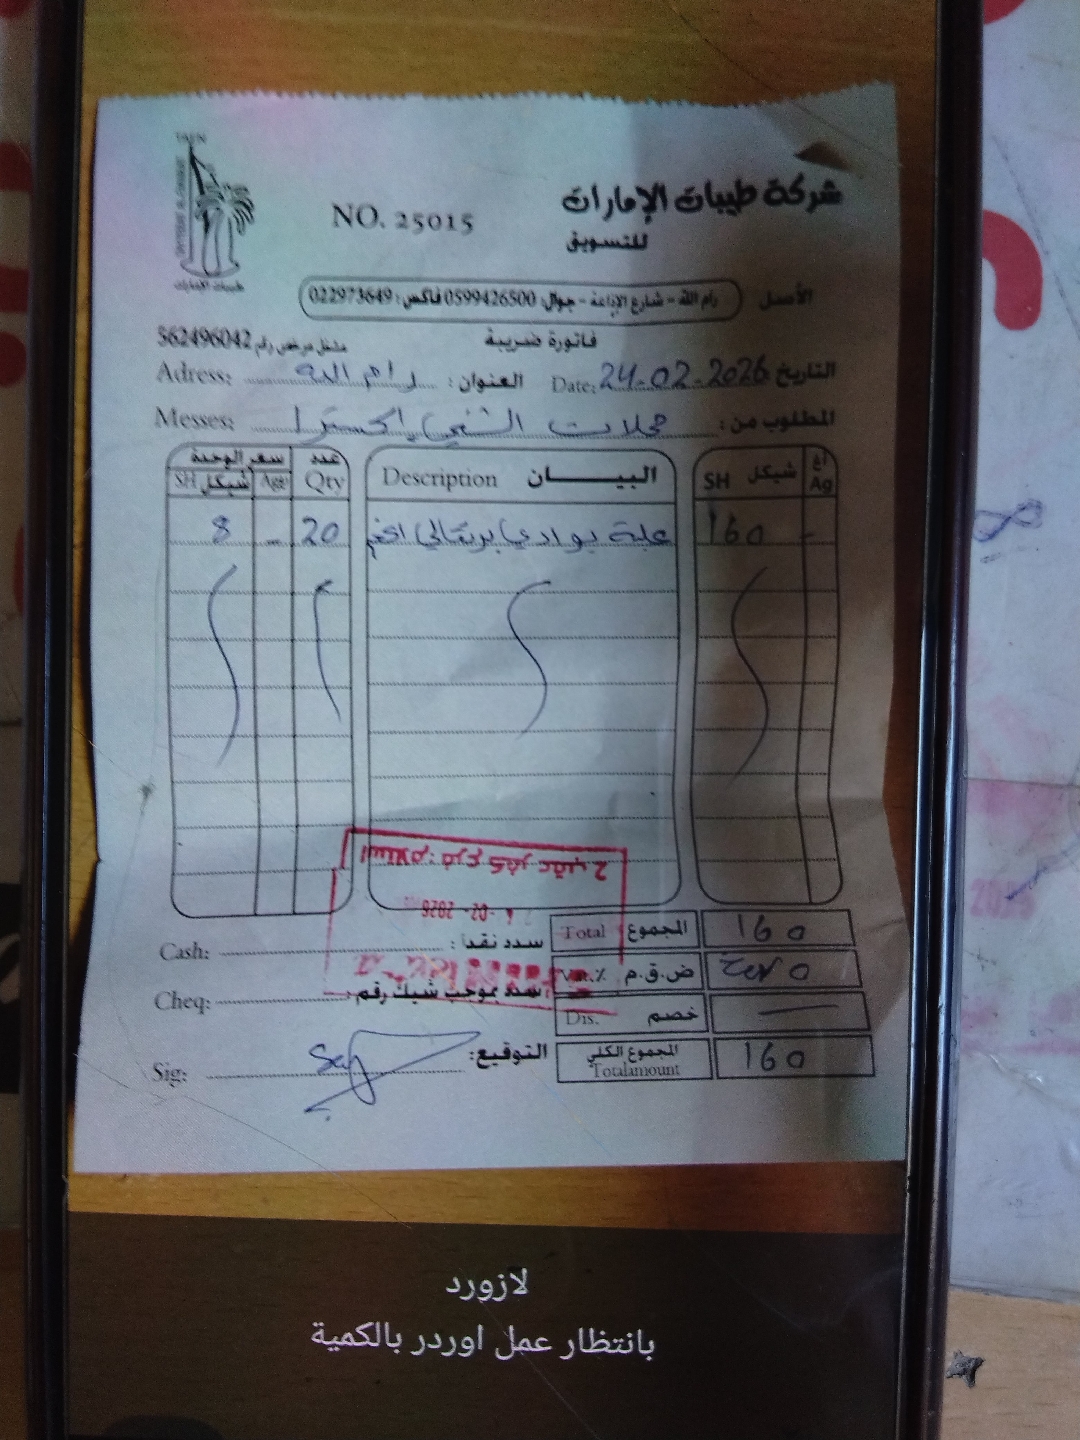 شركة طيبات الإمارات
للتسويق
NO. 25015
طيبات الإمارات
الأصل
رام الله - شارع الإذاعة - جوال: 0599426500 فاكس: 022973649
فاتورة ضريبة
مشتغل مرخص رقم 562496042
التاريخ Date: 24-02-2026
العنوان: رام الله Adress:
المطلوب من: محلات الشني إكسترا Messes:
أغ Ag شيكل SH البيـــان Description عدد Qty سعر الوحدة Age شيكل SH
- 160 علبة بوادي برتقالي 20 - 8
استلام: فرع كفر عقب 2
-02- 2026
المجموع Total 160
سدد نقداً: Cash:
ض.ق.م ٪ 0
سدد بموجب شيك رقم: Cheq:
خصم Dis.
المجموع الكلي Totalamount 160
التوقيع: Sig:
لازورد
بانتظار عمل اوردر بالكمية